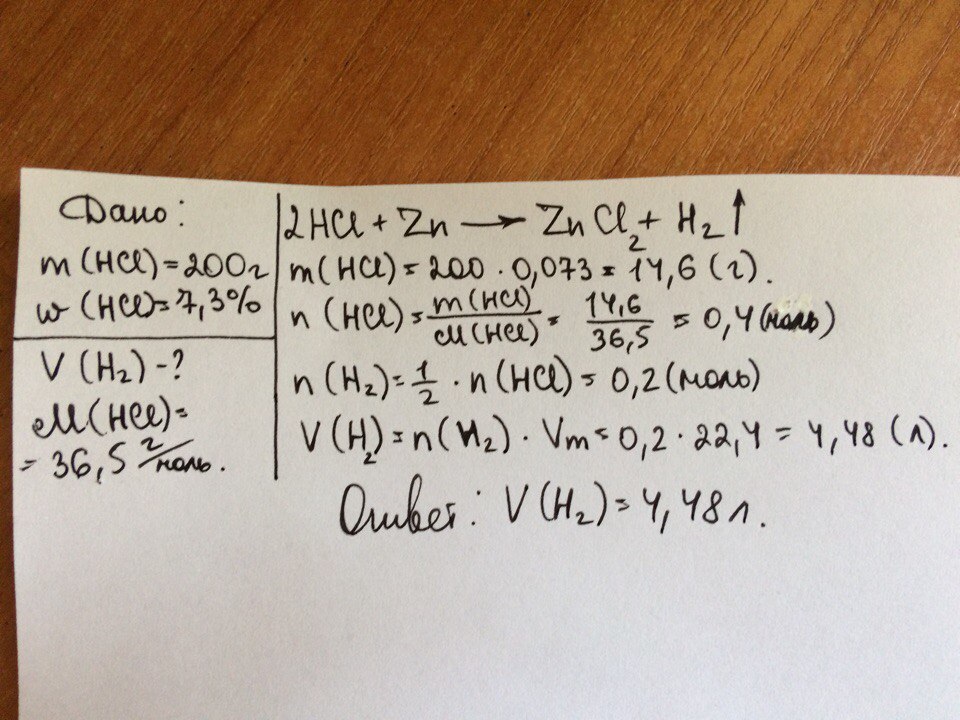 Дано:
m (HCl) = 200г
w (HCl) = 7,3%
V (H₂) - ?
M (HCl) =
= 36,5 г/моль.
2HCl + Zn → ZnCl₂ + H₂↑
m (HCl) = 200 · 0,073 = 14,6 (г).
n (HCl) = m(HCl)/M(HCl) = 14,6/36,5 = 0,4 (моль)
n (H₂) = 1/2 · n (HCl) = 0,2 (моль)
V (H₂) = n(H₂) · Vm = 0,2 · 22,4 = 4,48 (л).
Ответ: V (H₂) = 4,48 л.